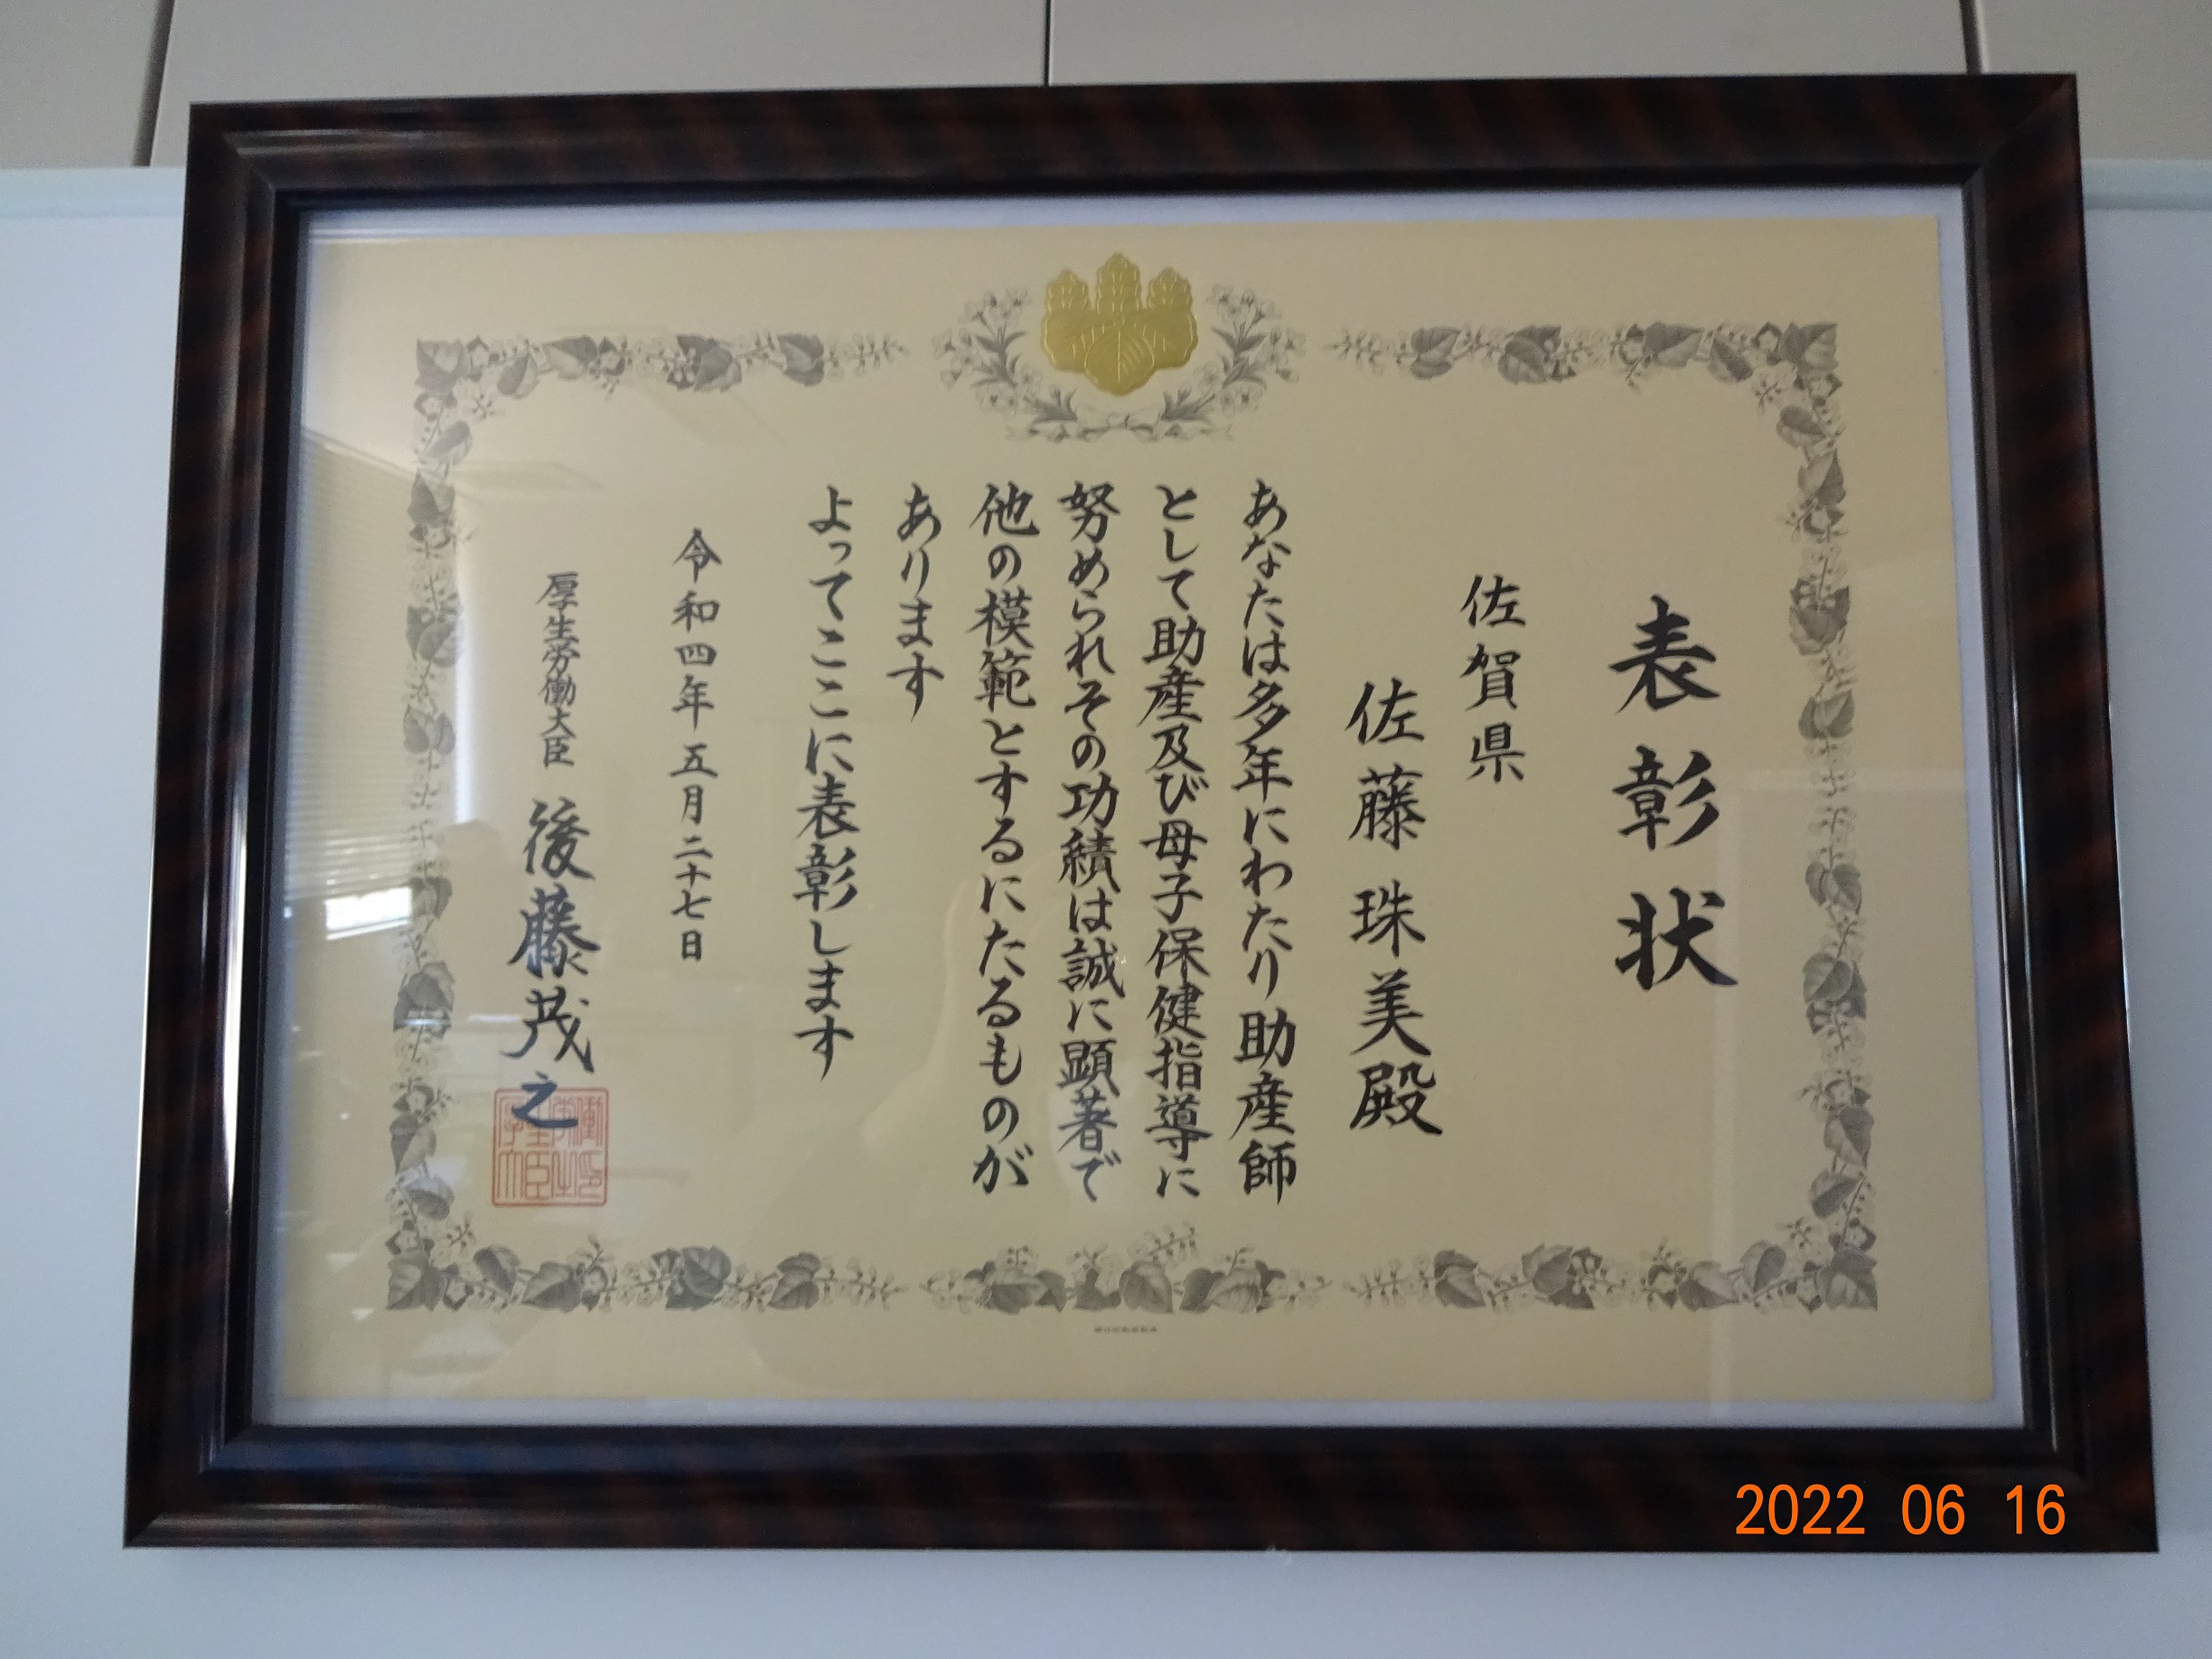 表彰状
佐賀県
佐藤珠美殿
あなたは多年にわたり助産師
として助産及び母子保健指導に
努められその功績は誠に顕著で
他の模範とするにたるものが
あります
よってここに表彰します
令和四年五月二十七日
厚生労働大臣 後藤茂之
2022 06 16